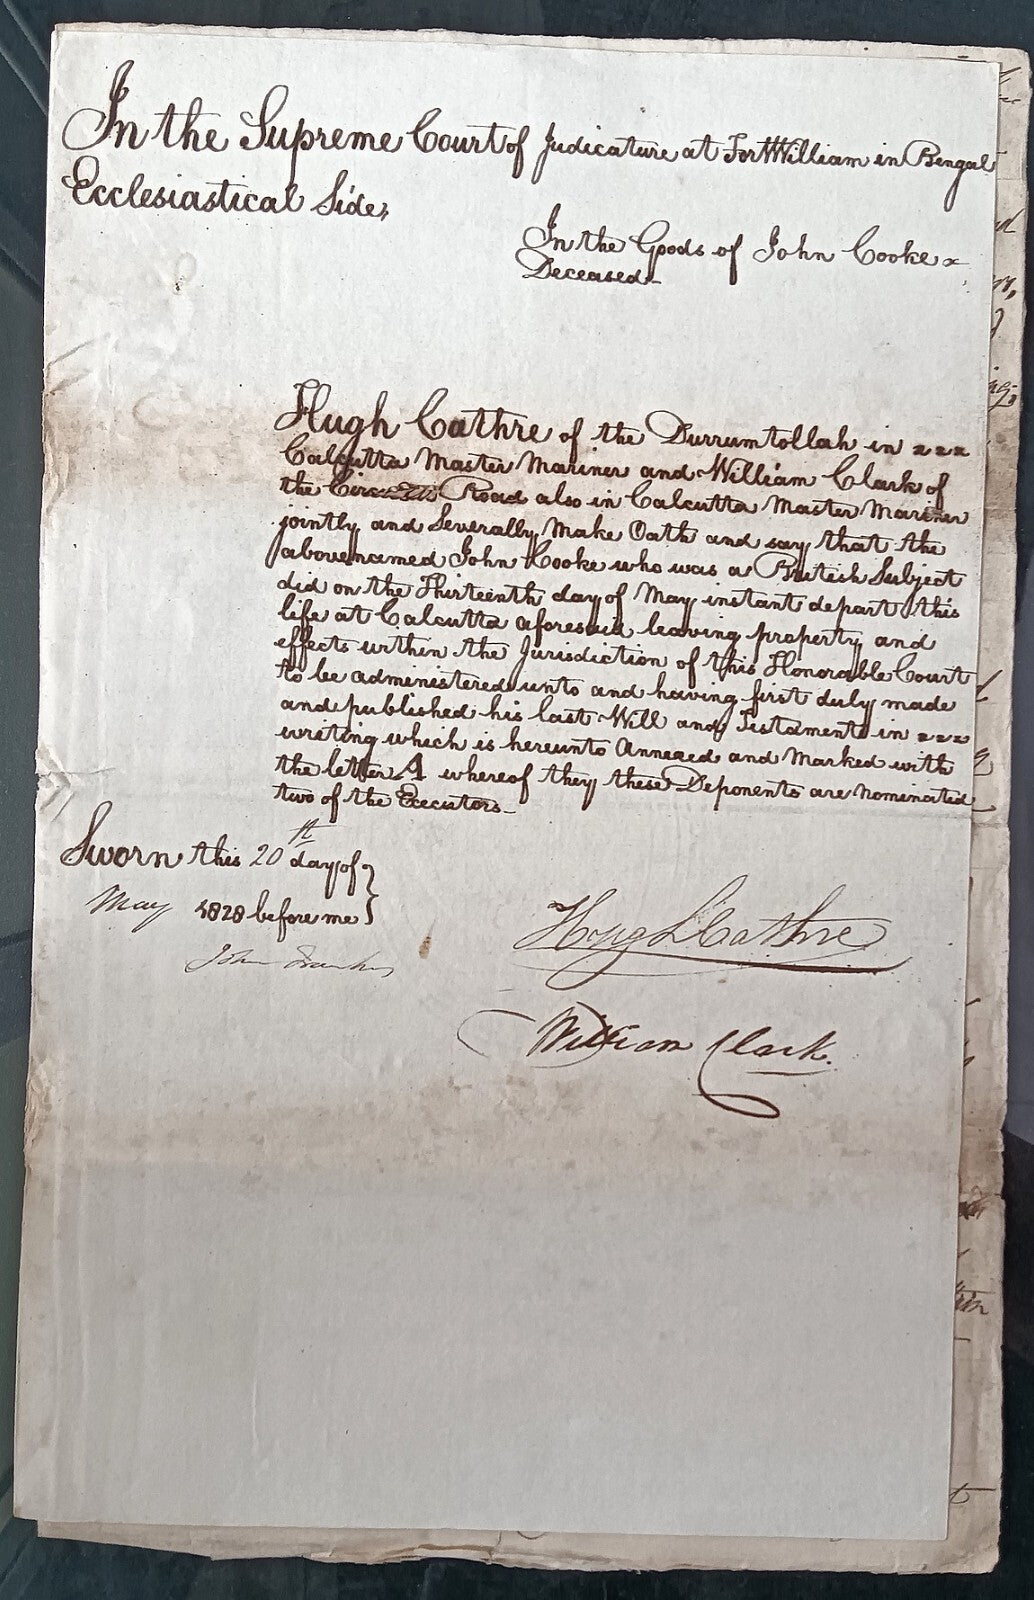 In the Supreme Court of Judicature at Fort William in Bengal
Ecclesiastical Side,
In the Goods of John Cooke x
Deceased
Hugh Cathre of the Durrumtollah in xxx
Calcutta Master Mariner and William Clark of
the Road also in Calcutta Master Mariner
jointly and Severally Make Oath and say that the
abovenamed John Cooke who was a British Subject
did on the Thirteenth day of May instant depart this
life at Calcutta aforesaid leaving property and
effects within the Jurisdiction of this Honorable Court
to be administered unto and having first duly made
and published his last Will and Testaments in xxx
writing which is hereunto Annexed and Marked with
the letter A whereof they these Deponents are nominated
two of the Executors
Sworn this 20th day of
May 1828 before me
John
Hugh Cathre
William Clark.